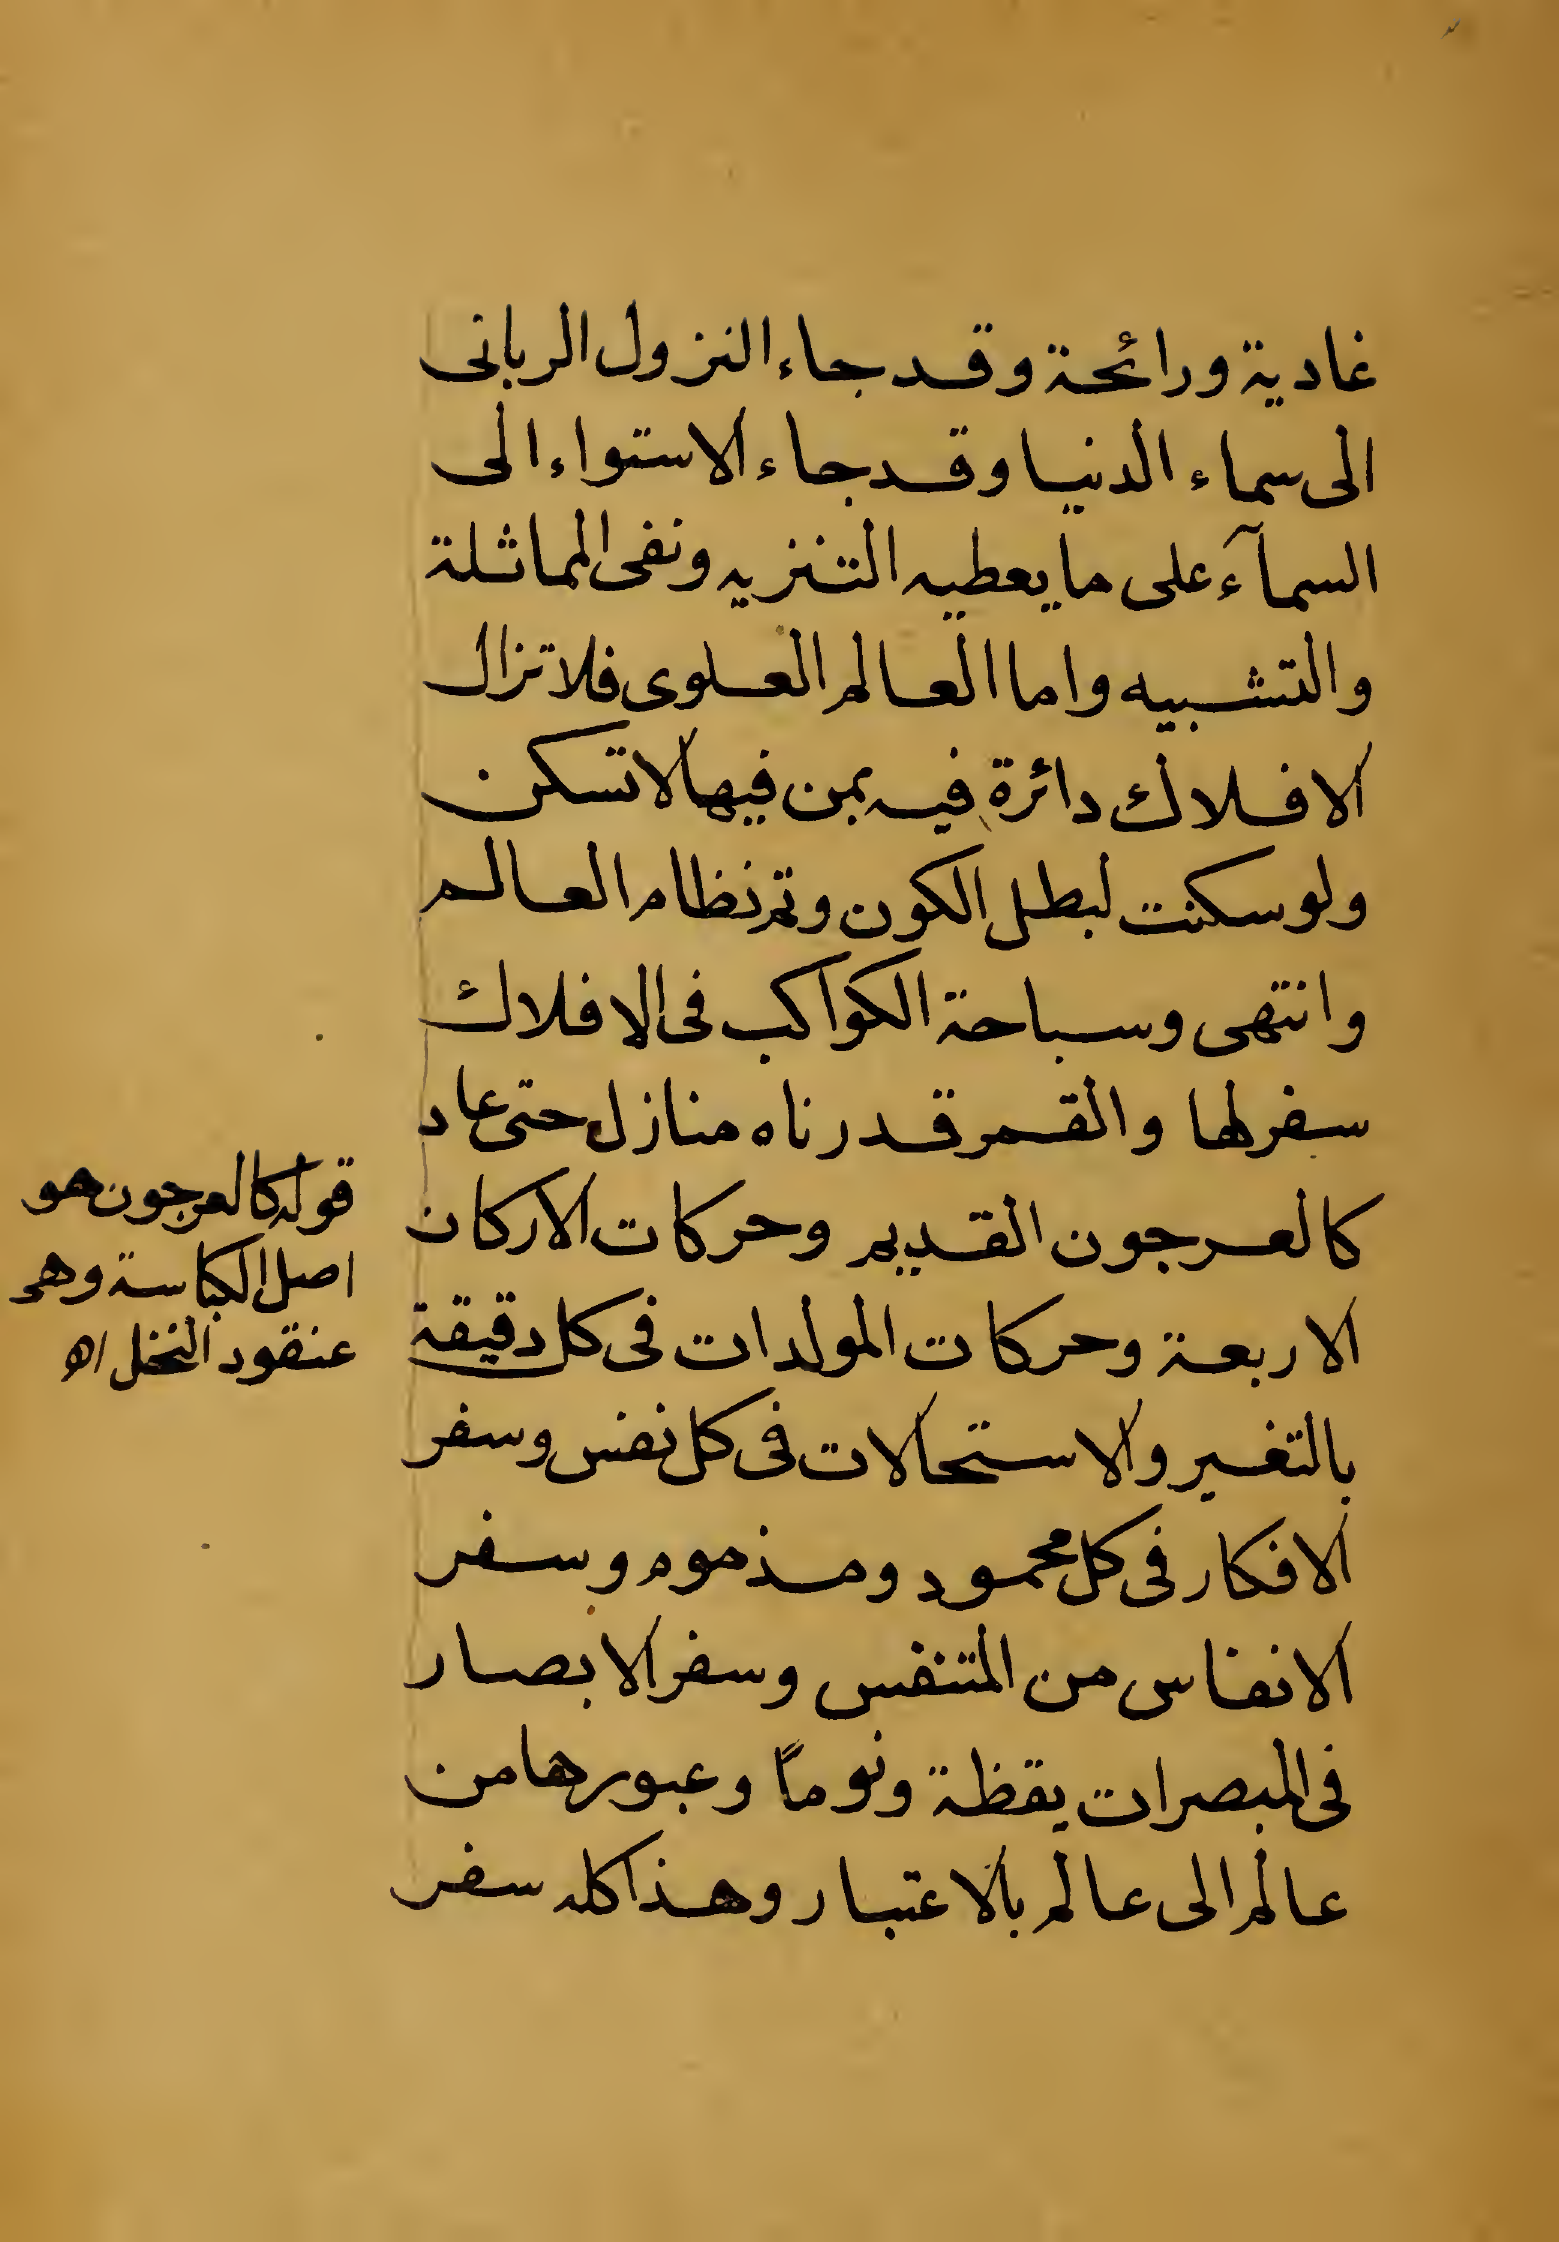 غادية ورائحة وقد جاء النزول الربانى
الى سماء الدنيا وقد جاء الاستواء الى
السمآء على ما يعطيه التنزيه ونفى المماثلة
والتشبيه واما العالم العلوى فلا تزال
الافلاك دائرة فيه بمن فيها لا تسكن
ولو سكنت لبطل الكون وتم نظام العالم
وانتهى وسباحة الكواكب فى الافلاك
سفر لها والقمر قدرناه منازل حتى عاد
كالعرجون القديم وحركات الاركان
الاربعة وحركات المولدات فى كل دقيقة
بالتغير والاستحالات فى كل نفس وسفر
الافكار فى كل محمود ومذموم وسفر
الانفاس من المتنفس وسفر الابصار
فى المبصرات يقظة ونوماً وعبورها من
عالم الى عالم بالاعتبار وهذا كله سفر
قوله كالعرجون هو
اصل الكباسة وهى
عنقود النخل اه